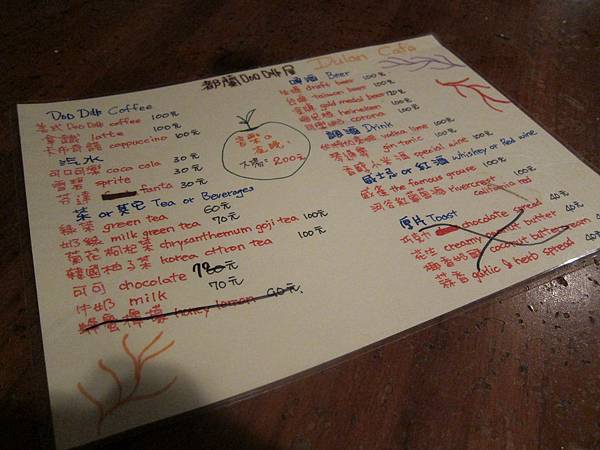 Dulan Cafe
Doo Dah Coffee
Doo Dah coffee 100元
拿鐵 latte 100元
卡布奇諾 cappuccino 100元
汽水
可口可樂 coca cola 30元
雪碧 sprite 30元
芬達 fanta 30元
茶 or 其它 Tea or Beverages
綠茶 green tea 60元
奶綠 milk green tea 70元
菊花枸杞茶 chrysanthemum goji tea 100元
韓國柚子茶 korea citron tea 100元
可可 chocolate
牛奶 milk 70元
蜂蜜檸檬 honey lemon 90元
音樂の
不專: 200元
啤酒 Beer
draft beer 100元
台啤 taiwan beer 100元
金牌 gold medal beer 120元
海尼根 heineken 100元
可樂娜 corona 100元
調酒 Drink
vodka lime 100元
琴湯寧 gin tonic 100元
小米酒 special wine 100元
威士忌 or 紅酒 whiskey or Red wine
威雀 the famous grouse 100元
河谷紅葡萄酒 rivercrest california red 100元
厚片 Toast
巧克力 chocolate spread 40元
花生 creamy peanut butter 40元
椰香奶酥 coconut butter cream 40元
蒜香 garlic & herb spread 40元